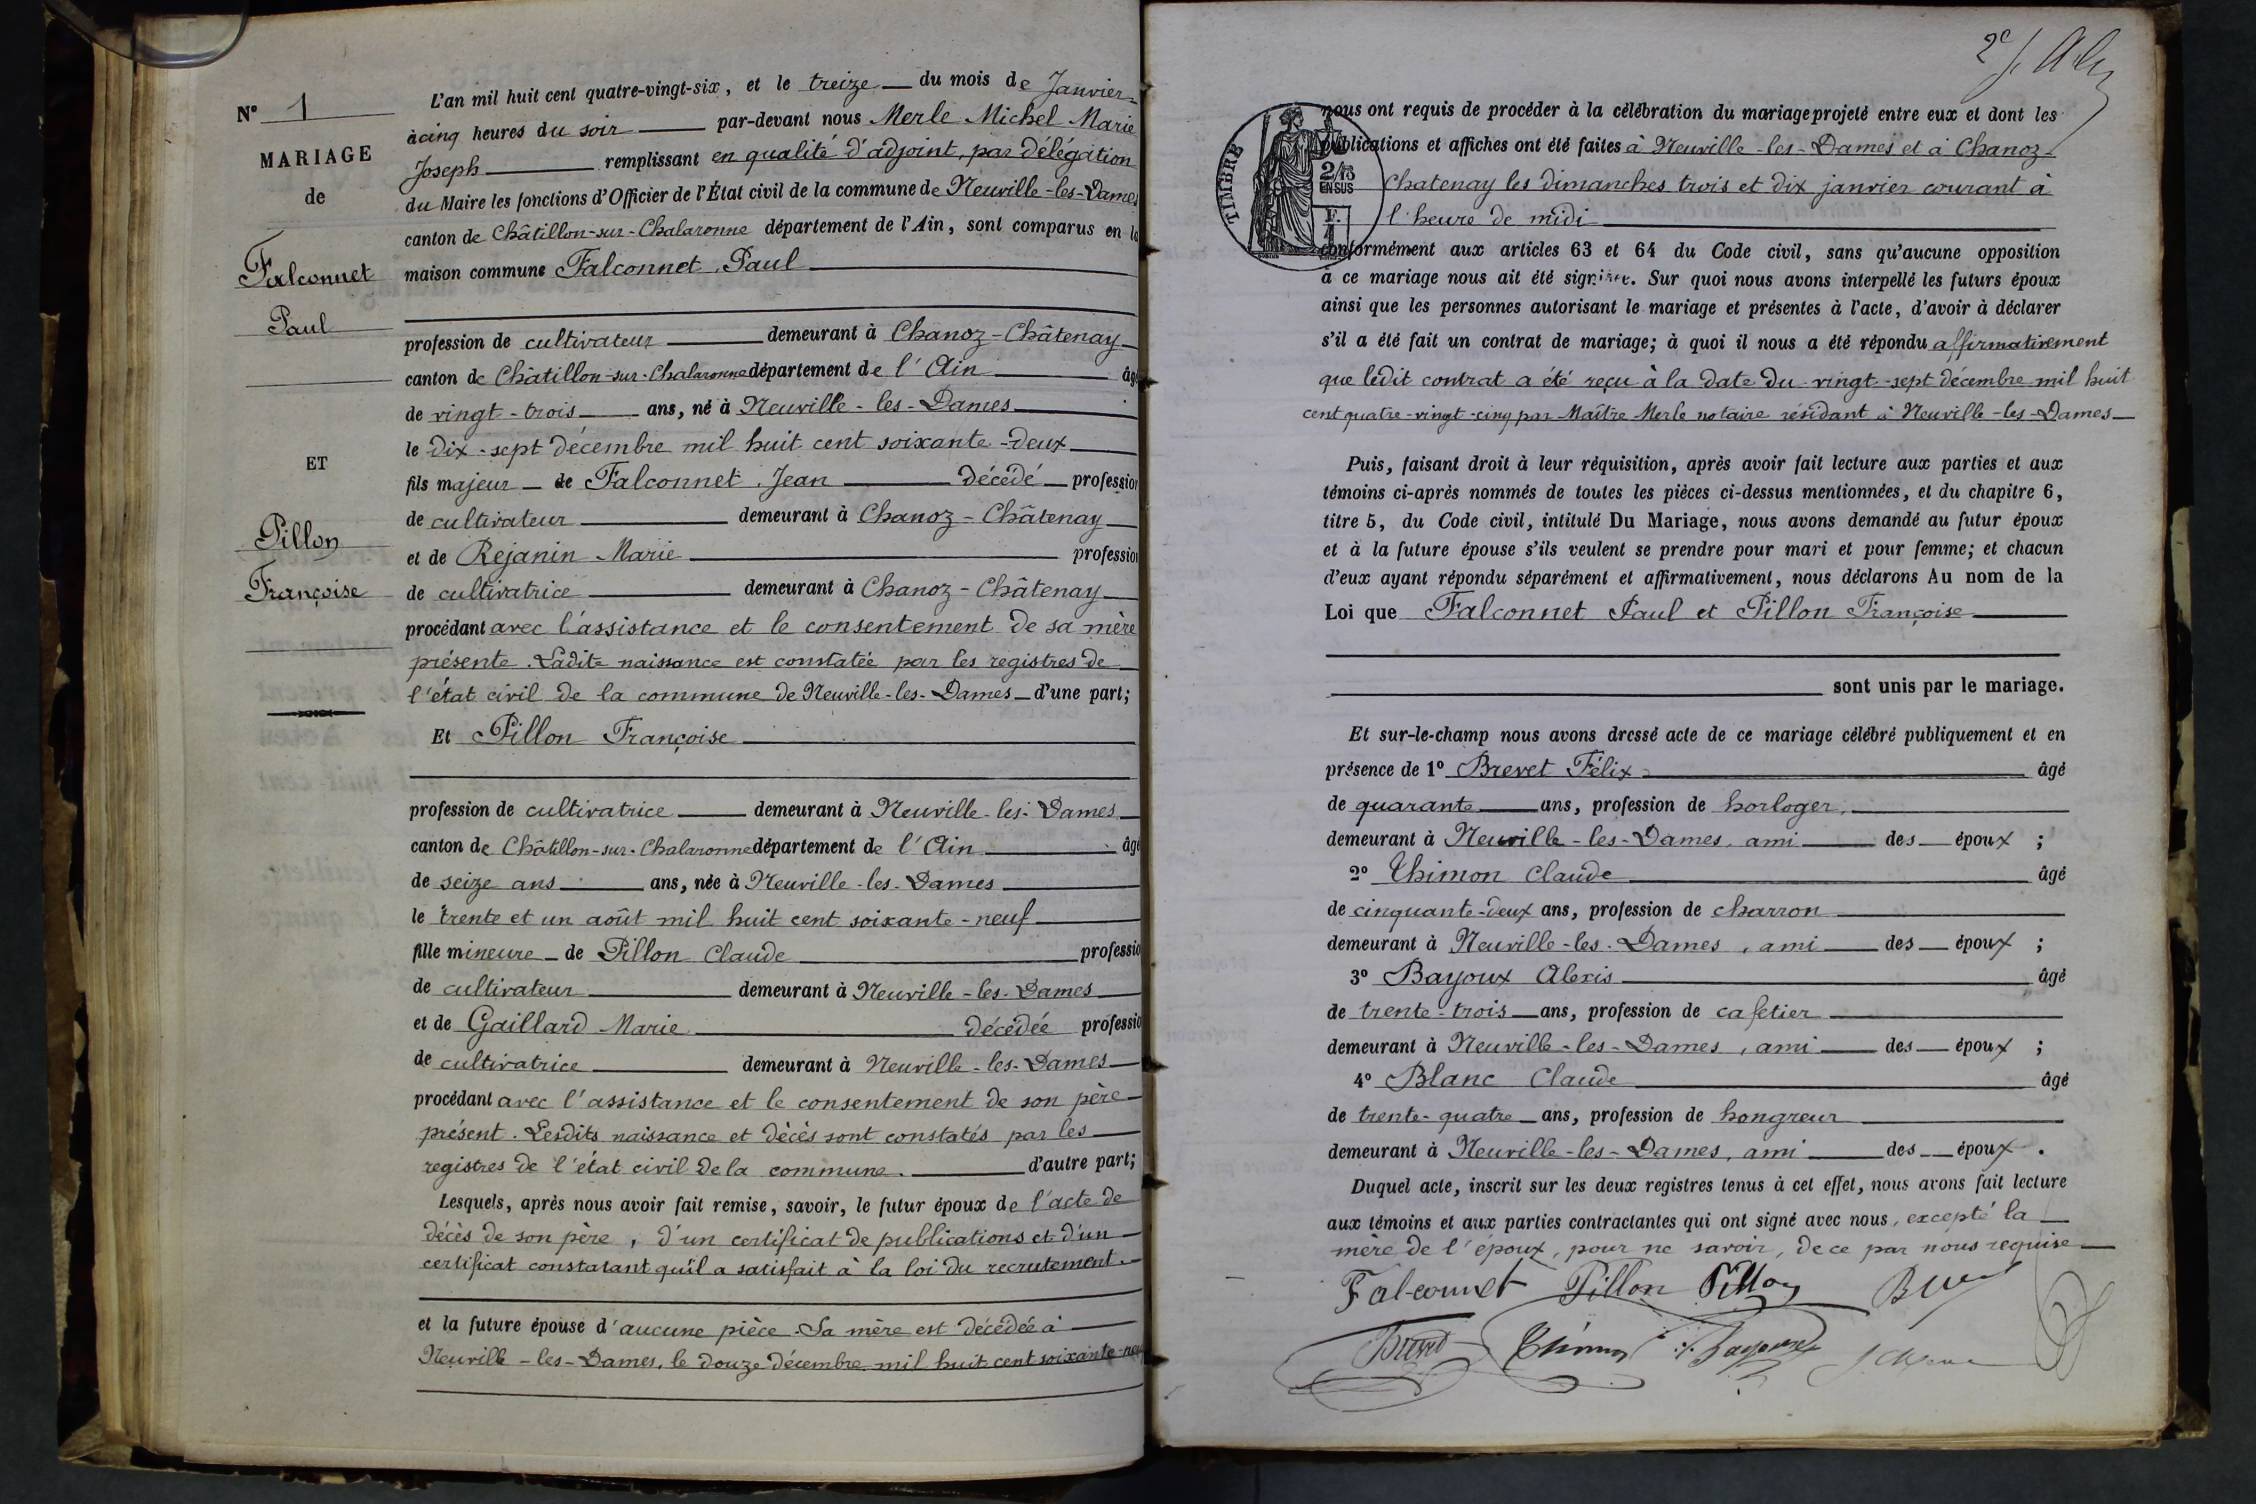 N° 1
MARIAGE
de
Falconnet
Paul
ET
Pillon
Françoise
L'an mil huit cent quatre-vingt-six, et le treize du mois de Janvier
à cinq heures du soir par-devant nous Merle Michel Marie
Joseph remplissant en qualité d'adjoint, par délégation
du Maire les fonctions d'Officier de l'État civil de la commune de Neuville-les-Dames
canton de Châtillon-sur-Chalaronne département de l'Ain, sont comparus en la
maison commune Falconnet, Paul
profession de cultivateur demeurant à Chanoz-Châtenay
canton de Châtillon-sur-Chalaronne département de l'Ain âgé
de vingt-trois ans, né à Neuville-les-Dames
le dix-sept décembre mil huit cent soixante-deux
fils majeur de Falconnet, Jean décédé profession
de cultivateur demeurant à Chanoz-Châtenay
et de Rejanin Marie profession
de cultivatrice demeurant à Chanoz-Châtenay
procédant avec l'assistance et le consentement de sa mère
présente. Ladite naissance est constatée par les registres de
l'état civil de la commune de Neuville-les-Dames d'une part;
Et Pillon Françoise
profession de cultivatrice demeurant à Neuville-les-Dames
canton de Châtillon-sur-Chalaronne département de l'Ain âgé
de seize ans ans, née à Neuville-les-Dames
le trente et un août mil huit cent soixante-neuf
fille mineure de Pillon Claude professio
de cultivateur demeurant à Neuville-les-Dames
et de Gaillard Marie décédée professio
de cultivatrice demeurant à Neuville-les-Dames
procédant avec l'assistance et le consentement de son père
présent. Lesdits naissance et décès sont constatés par les
registres de l'état civil de la commune. d'autre part;
Lesquels, après nous avoir fait remise, savoir, le futur époux de l'acte de
décès de son père, d'un certificat de publications et d'un
certificat constatant qu'il a satisfait à la loi du recrutement.
et la future épouse d'aucune pièce. Sa mère est décédée à
Neuville-les-Dames, le douze décembre mil huit cent soixante-neu
2e f.
TIMBRE
2/10
EN SUS
F.
nous ont requis de procéder à la célébration du mariage projeté entre eux et dont les
publications et affiches ont été faites à Neuville-les-Dames et à Chanoz-
Chatenay les dimanches trois et dix janvier courant à
l'heure de midi
conformément aux articles 63 et 64 du Code civil, sans qu'aucune opposition
à ce mariage nous ait été signifiée. Sur quoi nous avons interpellé les futurs époux
ainsi que les personnes autorisant le mariage et présentes à l'acte, d'avoir à déclarer
s'il a été fait un contrat de mariage; à quoi il nous a été répondu affirmativement
que ledit contrat a été reçu à la date du vingt-sept décembre mil huit
cent quatre-vingt-cinq par Maître Merle notaire résidant à Neuville-les-Dames
Puis, faisant droit à leur réquisition, après avoir fait lecture aux parties et aux
témoins ci-après nommés de toutes les pièces ci-dessus mentionnées, et du chapitre 6,
titre 5, du Code civil, intitulé Du Mariage, nous avons demandé au futur époux
et à la future épouse s'ils veulent se prendre pour mari et pour femme; et chacun
d'eux ayant répondu séparément et affirmativement, nous déclarons Au nom de la
Loi que Falconnet Paul et Pillon Françoise
sont unis par le mariage.
Et sur-le-champ nous avons dressé acte de ce mariage célébré publiquement et en
présence de 1° Brevet Félix âgé
de quarante ans, profession de horloger,
demeurant à Neuville-les-Dames, ami des époux ;
2° Thimon Claude âgé
de cinquante-deux ans, profession de charron
demeurant à Neuville-les-Dames, ami des époux ;
3° Bayoux Alexis âgé
de trente-trois ans, profession de cafetier
demeurant à Neuville-les-Dames, ami des époux ;
4° Blanc Claude âgé
de trente-quatre ans, profession de hongreur
demeurant à Neuville-les-Dames, ami des époux .
Duquel acte, inscrit sur les deux registres tenus à cet effet, nous avons fait lecture
aux témoins et aux parties contractantes qui ont signé avec nous, excepté la
mère de l'époux, pour ne savoir, de ce par nous requise
Falconnet Pillon Pillon
Brevet Thimon Bayoux